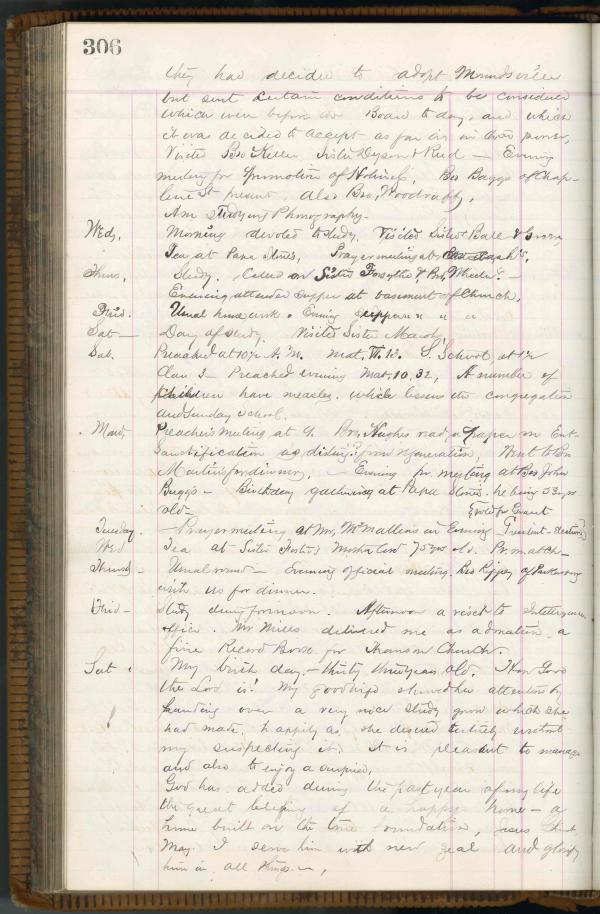 306
they had decided to adopt Moundsville
but sent certain conditions to be considered
which were before the Board to day, and which
it was decided to accept as far as in their power,
Visited Bro Keller Sister Dyson & Reed — Evening
meeting for promotion of Holiness, Bro Baggs of Chap-
line St present, also Bro, Woodruff,
Am studying Phonography.
Weds, Morning devoted to study, Visited Sisters Ball &
Tea at Papa Stones, Prayer meeting at
Thurs, Study. Called on Sister Forsythe & Bro, Wheeler. —
Evening attended supper at basement of Church,
Frid. Usual home work. Evening supper " " "
Sat — Day of study. Visited Sister Marsh,
Sab. Preached at 10½ A. M. Mat, VI. 13. S. School, at 1½
Class 3 — Preached evening Mat, 10, 32, A number of
children have measles. which lessens the congregation
and Sunday school.
Mond, Preacher's meeting at 9. Bro, Hughes read a paper on Ent-
Sanctification as distinct from regeneration, Went to Bro
Martins for dinner, — Evening pr. meeting at Bro John
Baggs — Birthday gathering at Papa Stones. he being 53 yrs
old — {voted for Grant
Tuesday. — Prayer meeting at Mr, McMullens in Evening President — election}
Wed Tea at Sister Fosters Mother 75 yrs old. Pr. m at Ch —
Thursd — Usual round — Evening official meeting. Bro Rippey of Parkersburg
with us for dinner.
Frid — Study during forenoon. Afternoon a visit to Intelligencer
office. Mr Mills delivered me as a donation, a
fine Record Book for Thomson Church.
Sat. My birth day. — thirty three years old. How Good
the Lord is! My good wife showed her attention by
handing over a very nice study gown which she
had made, happily as she desired entirely without
my suspecting it. it is pleasant to manage
and also to enjoy a surprise,
God has added during the past year of my life
the great blessing of a happy home — a
home built on the true foundation, Jesus Christ
May I serve him with new zeal and glorify
him in all things —,